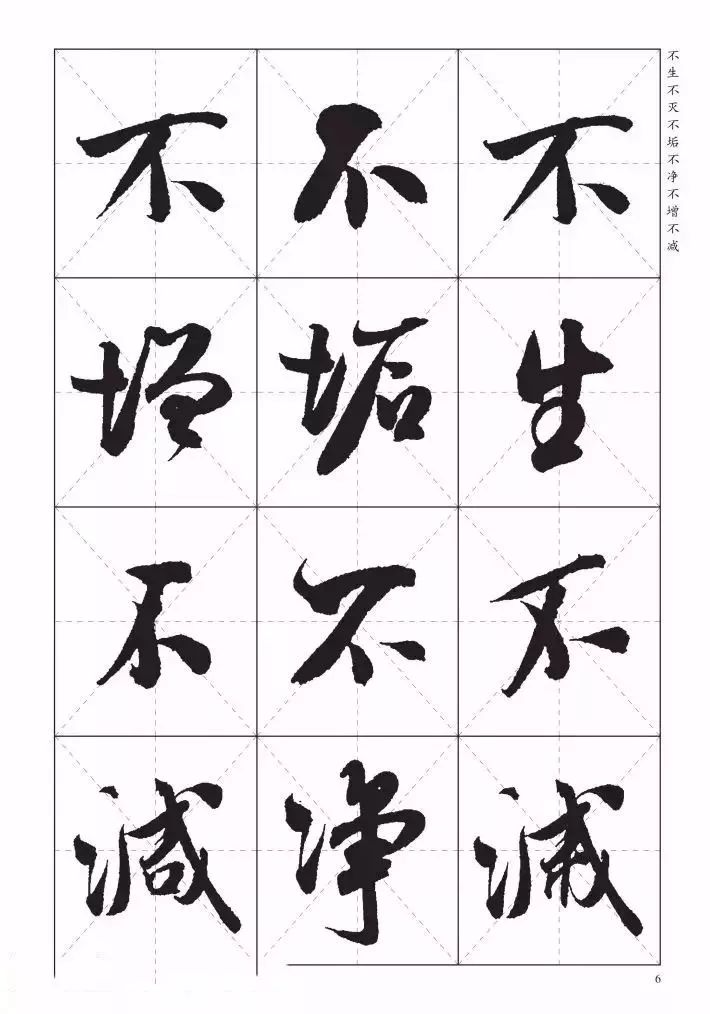 不生不灭不垢不净不增不减
不生不滅
不垢不净
不增不減
6